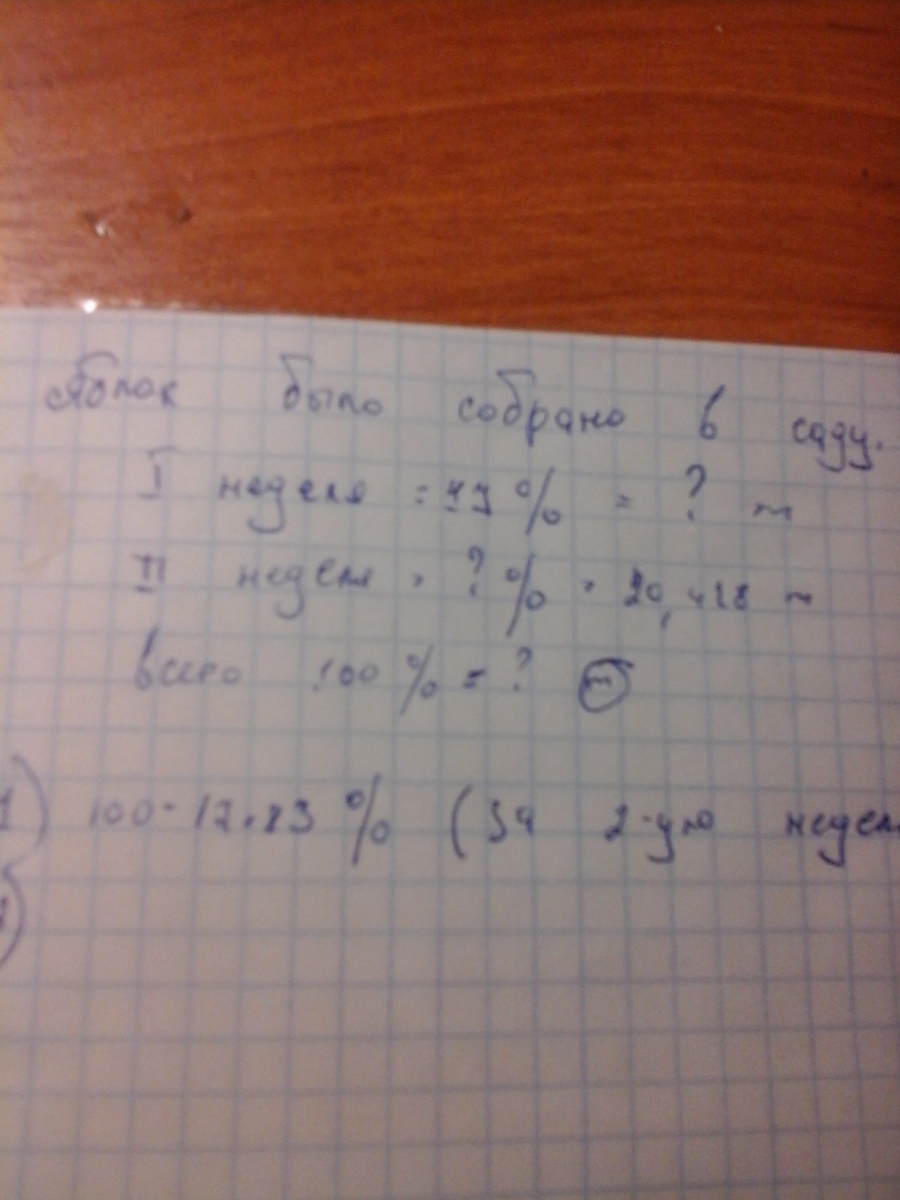 Яблок было собрано в саду.
I неделя = 47 % = ? т
II неделя = ? % = 20,428 т
всего 100 % = ? т
1) 100-17=83 % (за 2-ую недел